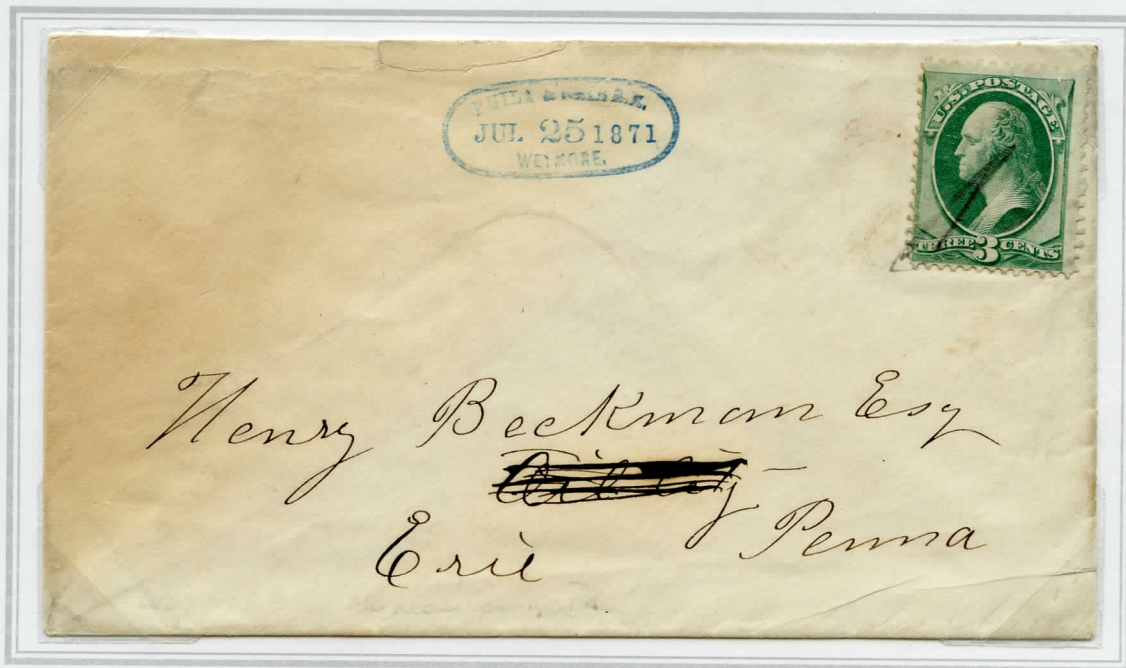 PHILA & ERIE R.R.
JUL 25 1871
WETMORE.
U.S. POSTAGE
THREE 3 CENTS
Henry Beckman Esq
Oil City
Erie Penna